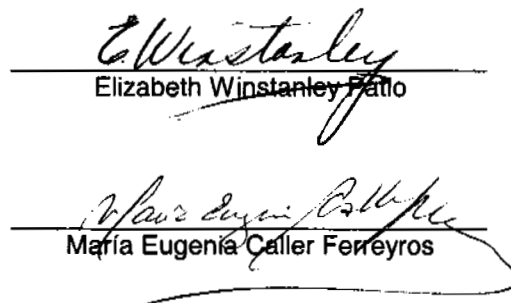 E Winstanley
Elizabeth Winstanley Patio
María Eugenia Caller
María Eugenia Caller Ferreyros